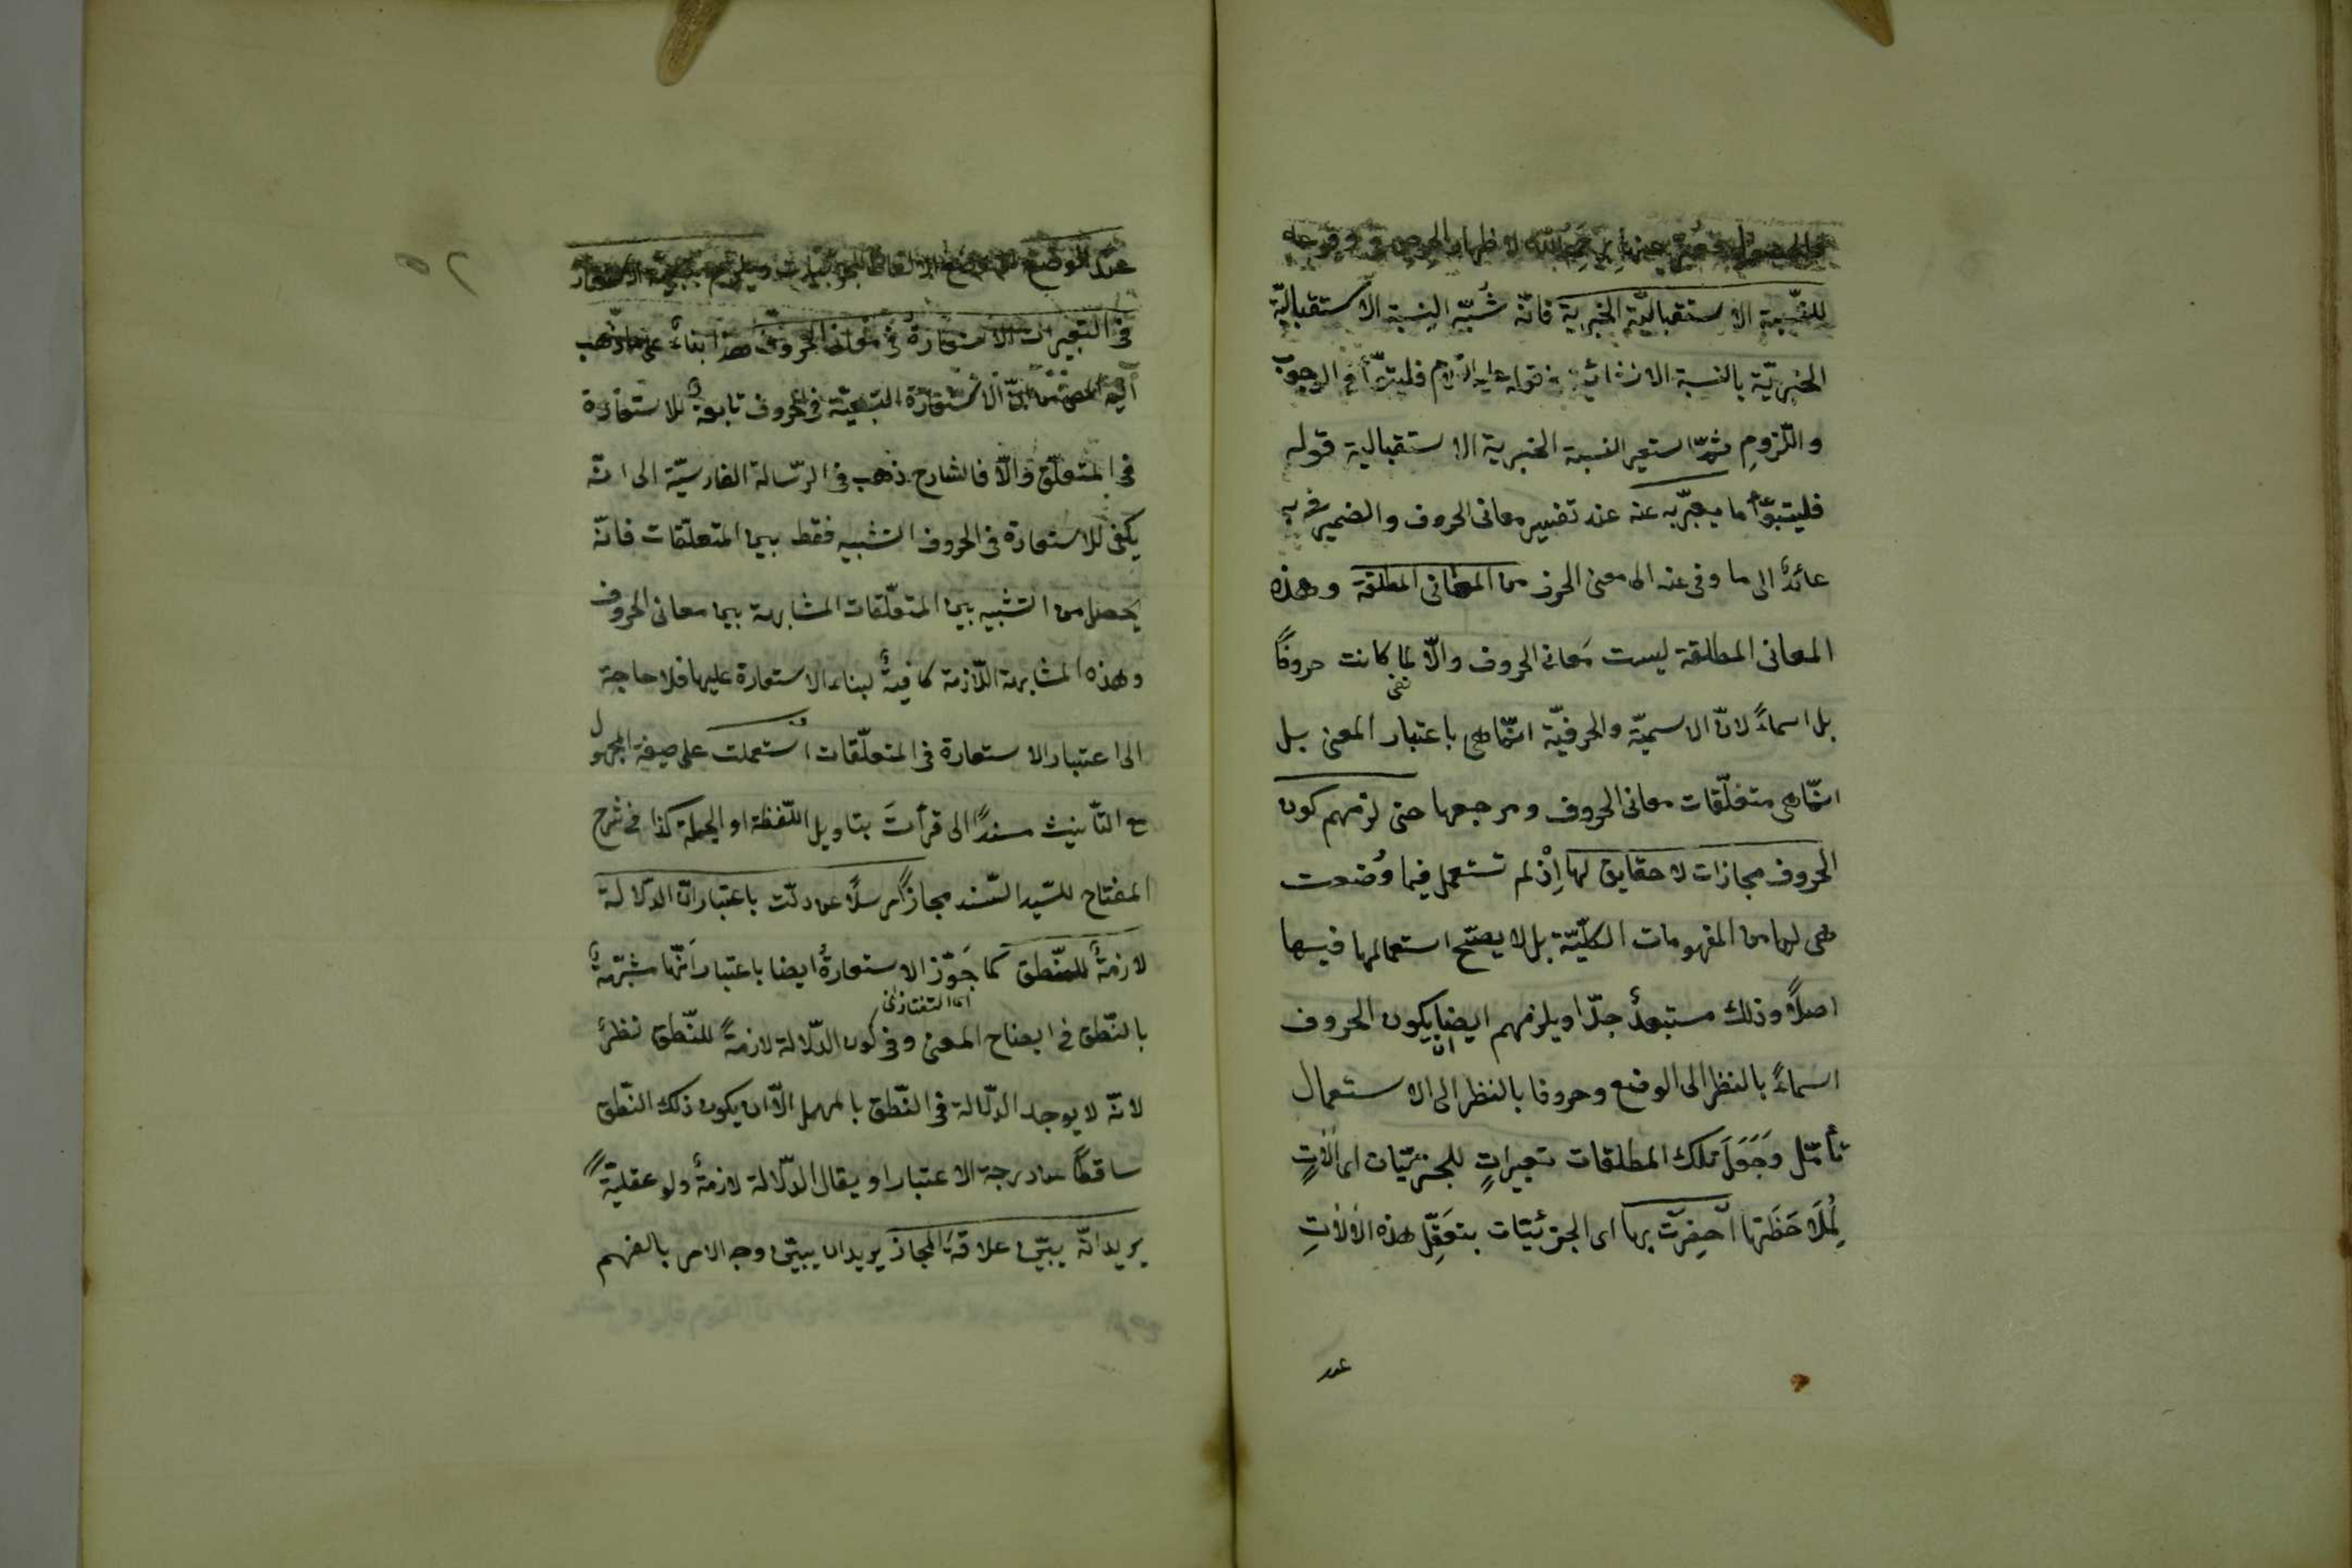 للنسبة الاستقباليّة الخبرية فانّه شُبّه النسبة الاستقباليّة
الخبريّة بالنسبة الانشائية فى قوله عليه السّلام فليتبوّأ فى الوجوب
واللّزوم ثمّ استعير النسبة الخبرية الاستقبالية قوله
فليتبوّأ ما يعبّر به عنه عند تفسير معانى الحروف والضمير فى به
عائدٌ الى ما وفى عنه الى معنى الحرف من المعانى المطلقة وهذه
المعانى المطلقة ليست مَعانى الحروف والّا لما كانت حروفًا
بل اسماءً لانّ الاسميّة والحرفيّة انّما هى باعتبار المعنى بل
انّما هى متعلّقات معانى الحروف ومرجعها حتى لزمهم كون
الحروف مجازات لا حقايق لها اِذْ لم تستعمل فيما وُضعت
هى لها من المفهومات الكلّيّة بل لا يصحّ استعمالها فيها
اصلًا وذلك مستبعدٌ جدّا ويلزمهم ايضا ان يكون الحروف
اسماءً بالنظر الى الوضع وحروفا بالنظر الى الاستعمال
تأمّل وَجَعَلَ تلك المطلقات تعبيراتٍ للجزئيّات اى آلاتٍ
لِمُلَاحَظَتها اُحضِرَت بها اى الجزئيّات بتعَقّلِ هذه الآلاتِ
عند
٢٥
عند الوضع
فى التعبيرات الاستعارةُ فى الحروف هذا بناءً على ما ذهب
اليه انّ الاستعارة التبعيّة فى الحروف تابعةٌ للاستعارة
فى المتعلّق والّا فالشارح ذهب فى الرّسالة الفارسيّة الى انّه
يكفى للاستعارة فى الحروف التشبيه فقط بين المتعلّقات فانّه
يحصل من التشبيه بين المتعلّقات المشابهة بين معانى الحروف
وهذه المشابهة اللّازمة كافيةٌ لبناء الاستعارة عليها فلا حاجة
الى اعتبار الاستعارة فى المتعلّقات استعملت على صيغة المجهول
مع التّأنيث مسندًا الى قرأتَ بتاويل اللّفظة او الجملة كذا فى شرح
المفتاح للسّيد السّند مجازًا مرسلًا عن دلّت باعتبار انّ الدّلالة
لازمةٌ للنّطق كما جَوّز الاستعارةُ ايضا باعتبار انّها مشبّهةٌ
اى التفتازانى
بالنّطق فى ايضاح المعنى وفى كون الدّلالة لازمةً للنّطق نظرٌ
لانّه لا يوجد الدّلالة فى النّطق بالمهمل الّا ان يكون ذلك النّطق
ساقطًا عن درجة الاعتبار او يقال الدّلالة لازمةٌ ولو عقليّةً
يريد انّه يبيّن علاقةَ المجاز يريد ان يبيّن وجه الامر بالفهم